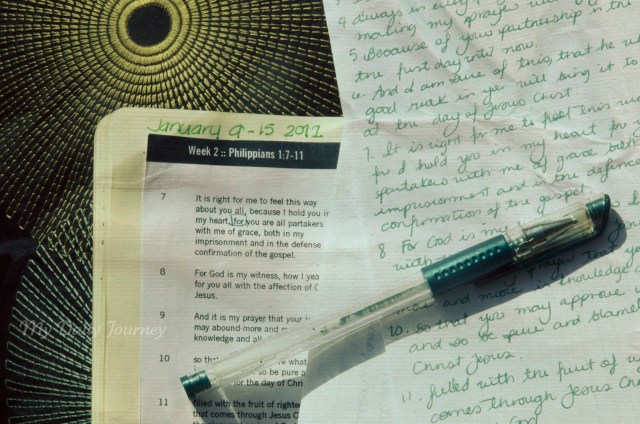 January 9-15 2012
Week 2 :: Philippians 1:7-11
7 It is right for me to feel this way
about you all, because I hold you in
my heart, for you are all partakers
with me of grace, both in my
imprisonment and in the defense
confirmation of the gospel.
8 For God is my witness, how I yea
for you all with the affection of C
Jesus.
9 And it is my prayer that your
may abound more and
knowledge and all
10 so that what
so be pure a
for the day of Chri
11 filled with the fruit of righte
that comes through Jesus C
4 always in every
making my prayer with
5 Because of your partnership in the
the first day until now.
6 And I am sure of this, that he wh
good work in ye will bring it to
at the day of Jesus Christ
7. It is right for me to feel this way
I hold you in my heart for
partakers with me of grace both
imprisonment and in the defense
confirmation of the gospel.
8 For God is my
with
more and more in knowledge
10. so that you may approve
and so be pure and blamel
Christ Jesus.
11. filled with the fruit of
comes through Jesus Ch
My Daily Journey